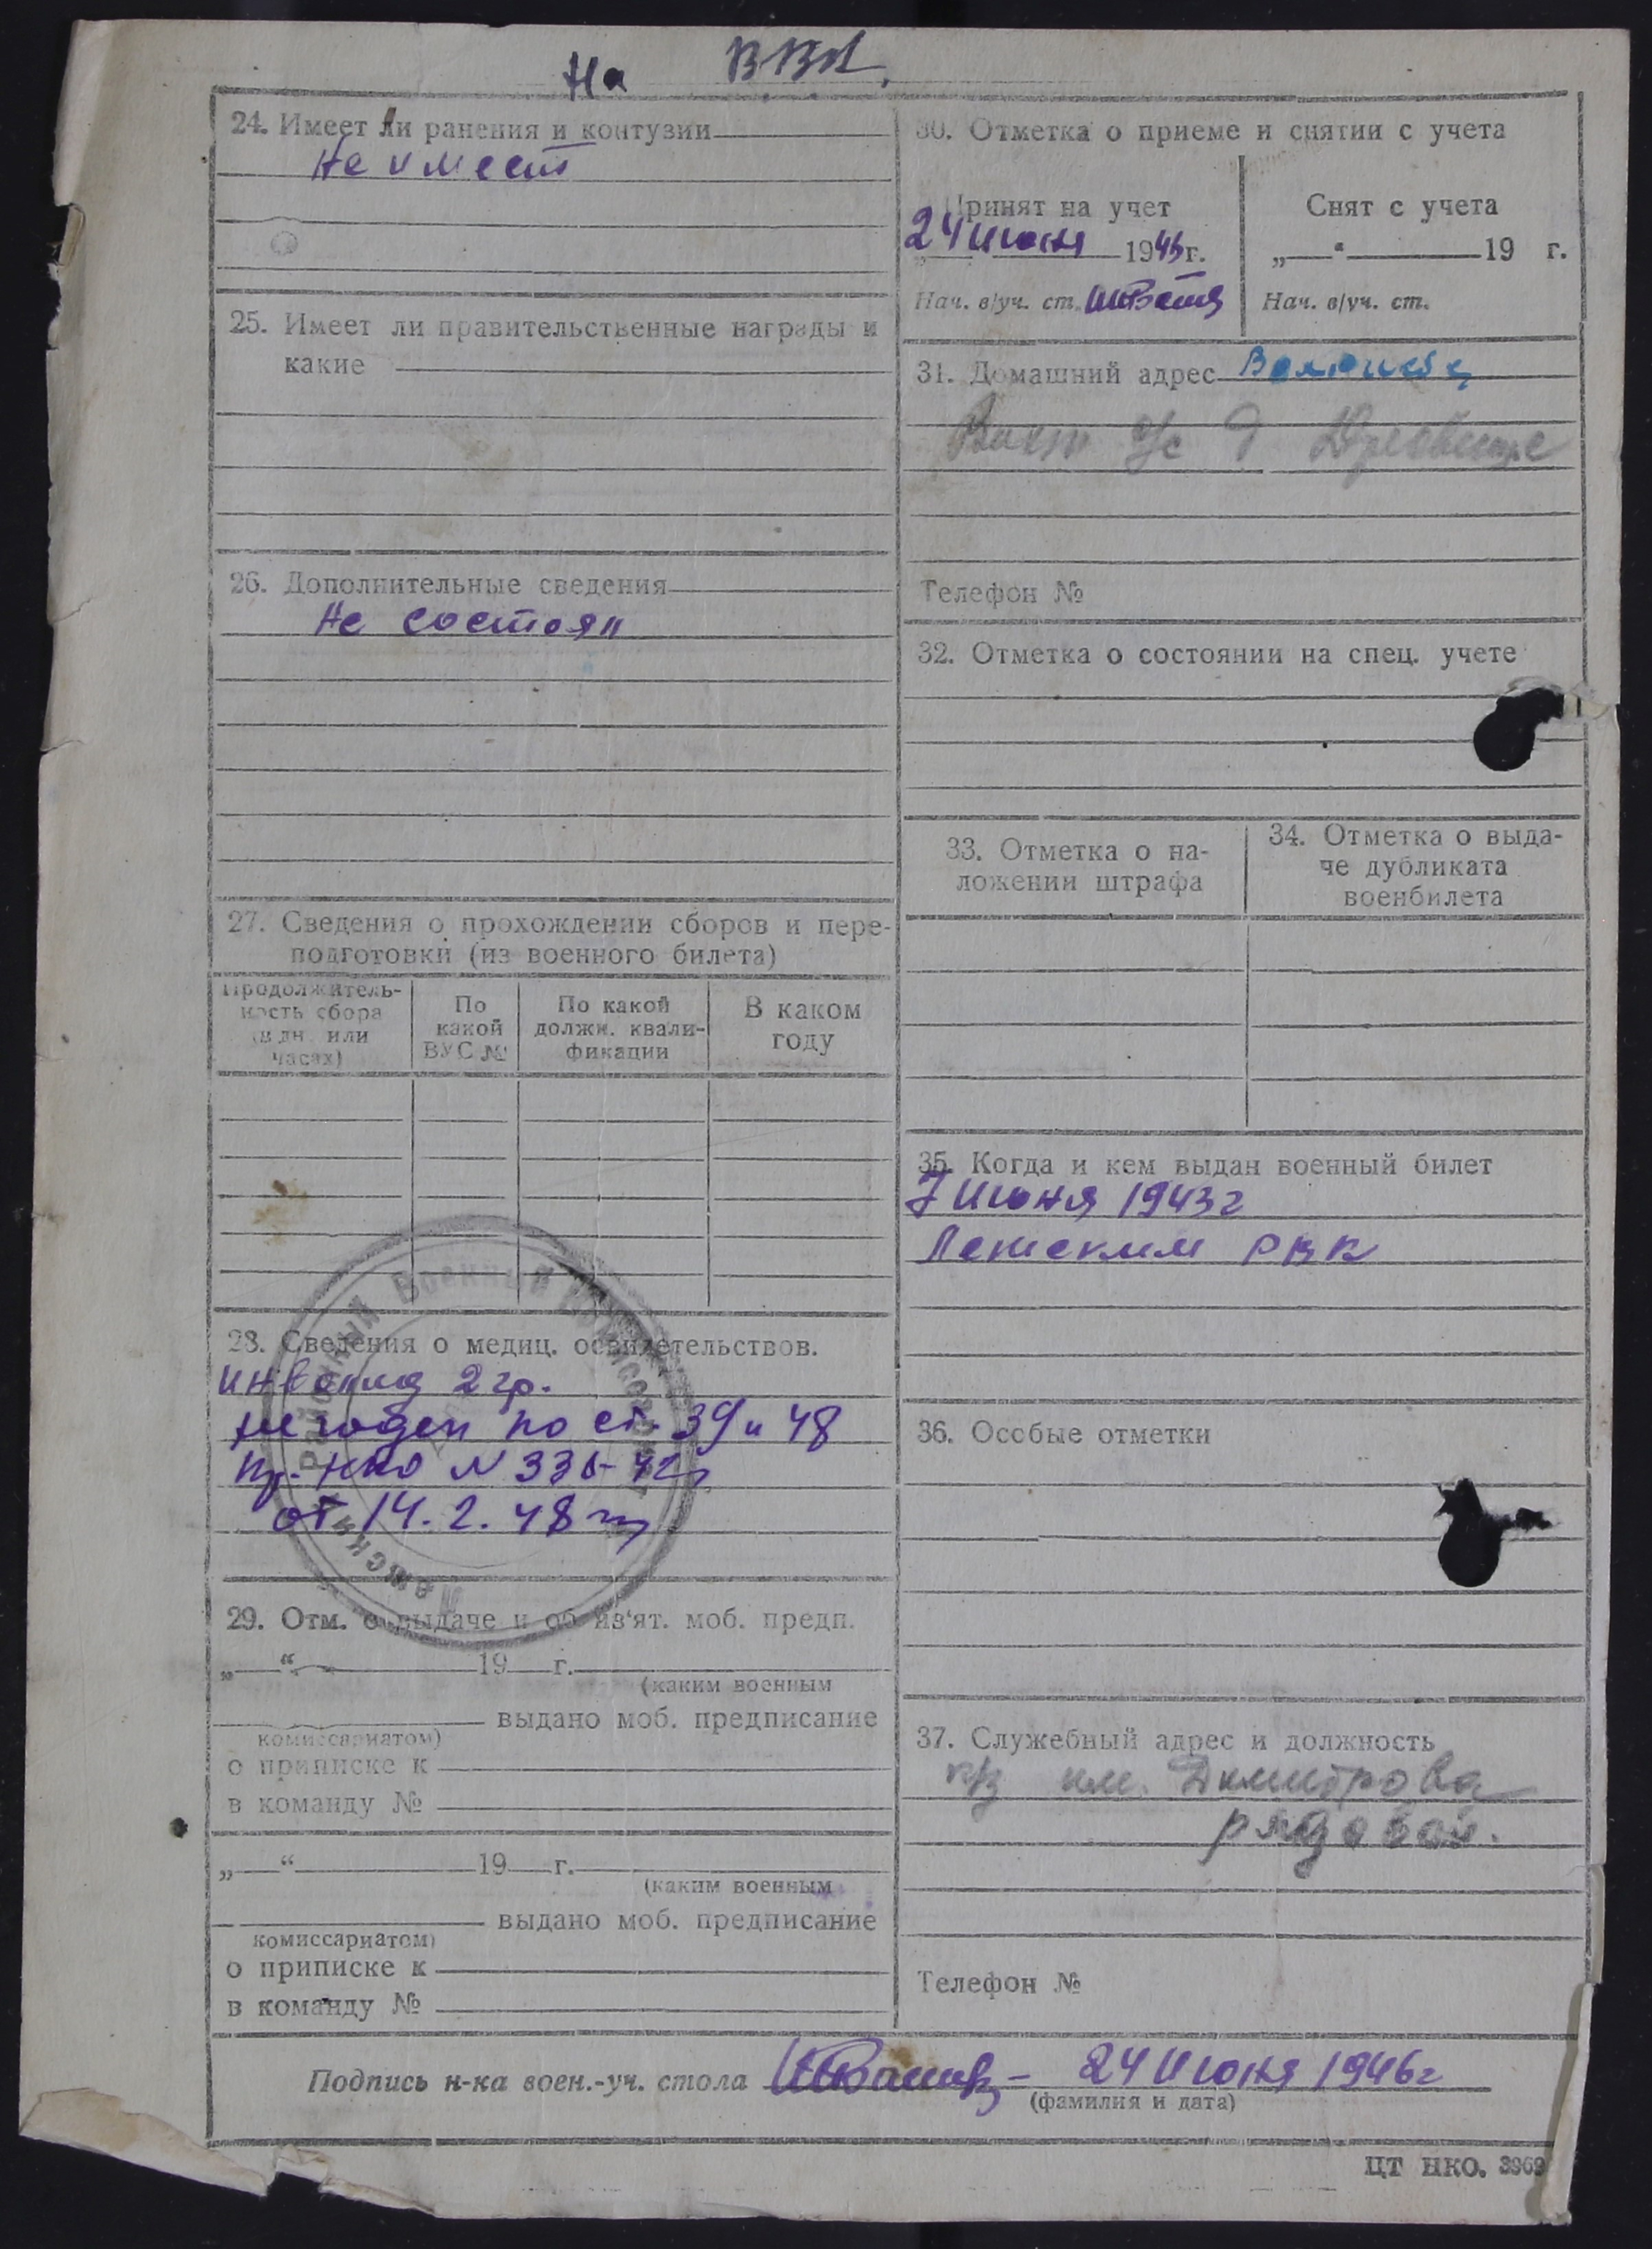 На ВВК
24. Имеет ли ранения и контузии
Не имеет
25. Имеет ли правительственные награды и
какие
26. Дополнительные сведения
Не состоял
27. Сведения о прохождении сборов и пере-
подготовки (из военного билета)
Продолжитель-
ность сбора
(в дн. или
часах)
По
какой
ВУС №
По какой
должн. квали-
фикации
В каком
году
28. Сведения о медиц. освидетельствов.
инвалид 2 гр.
не годен по ст. 39 и 48
пр. НКО N 336-42г
от 14.2.48 г
Районный Военный Комиссариат
29. Отм. о выдаче и об из'ят. моб. предп.
„ “ 19 г.
(каким военным
выдано моб. предписание
комиссариатом)
о приписке к
в команду №
„ “ 19 г.
(каким военным
выдано моб. предписание
комиссариатом)
о приписке к
в команду №
30. Отметка о приеме и снятии с учета
Принят на учет
24 июня 194 г.
Нач. в/уч. ст.
Снят с учета
„ “ 19 г.
Нач. в/уч. ст.
31. Домашний адрес
с/с д
Телефон №
32. Отметка о состоянии на спец. учете
33. Отметка о на-
ложении штрафа
34. Отметка о выда-
че дубликата
военбилета
35. Когда и кем выдан военный билет
7 июня 1943 г
РВК
36. Особые отметки
37. Служебный адрес и должность
к/з им. Димитрова
рядовой.
Телефон №
Подпись н-ка воен.-уч. стола — 24 июня 1946 г
(фамилия и дата)
ЦТ НКО. 3969